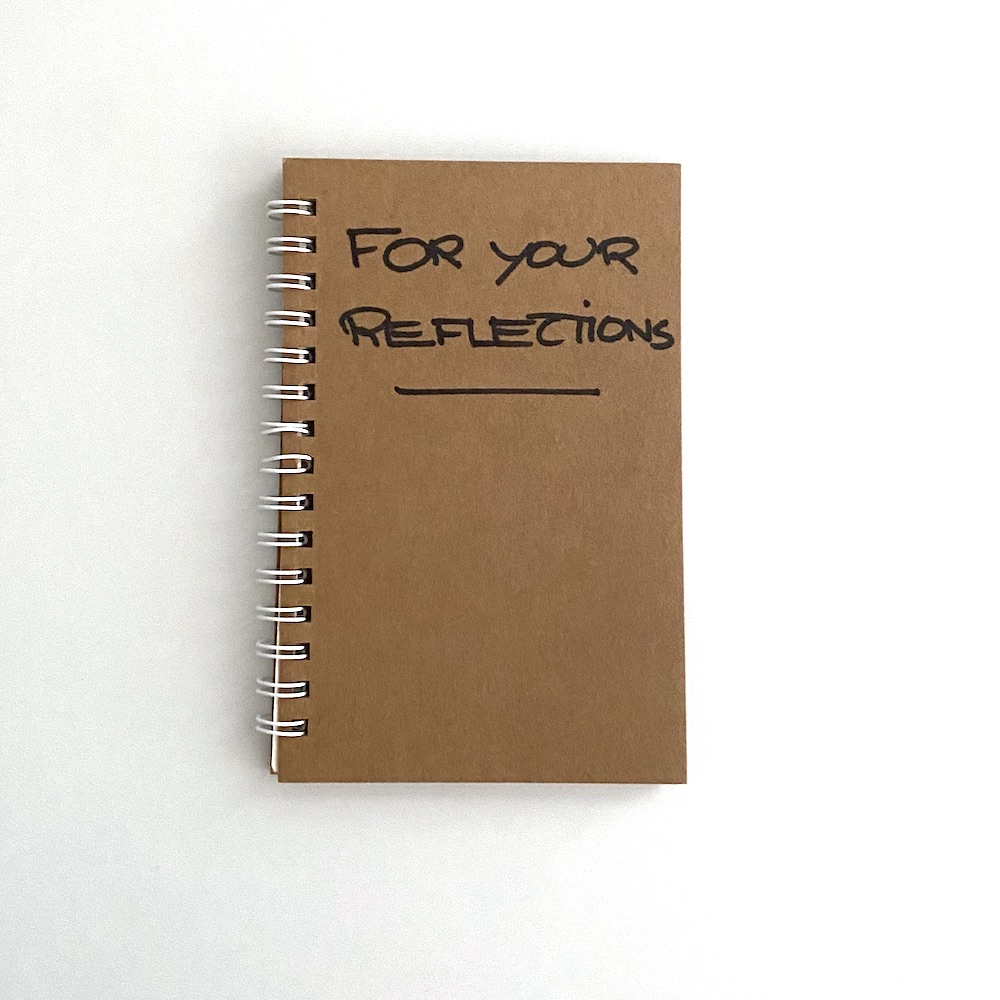 FOR YOUR
REFLECTIONS